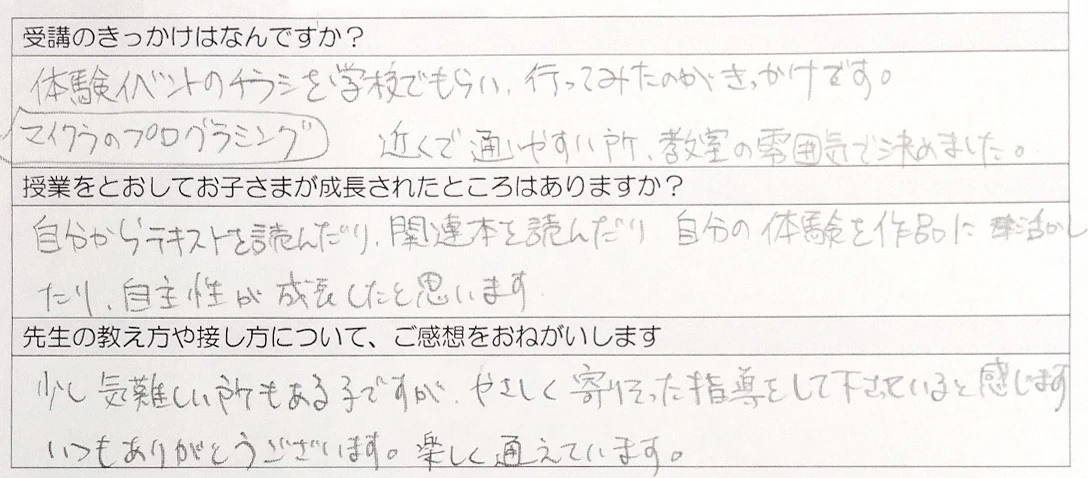 受講のきっかけはなんですか？
体験イベントのチラシを学校でもらい、行ってみたのがきっかけです。
マイクラのプログラミング　近くで通いやすい所、教室の雰囲気で決めました。
授業をとおしてお子さまが成長されたところはありますか？
自分からテキストを読んだり、関連本を読んだり 自分の体験を作品に活かし
たり、自主性が成長したと思います
先生の教え方や接し方について、ご感想をおねがいします
少し気難しい所もある子ですが、やさしく寄りそった指導をして下さっていると感じます
いつもありがとうございます。楽しく通えています。